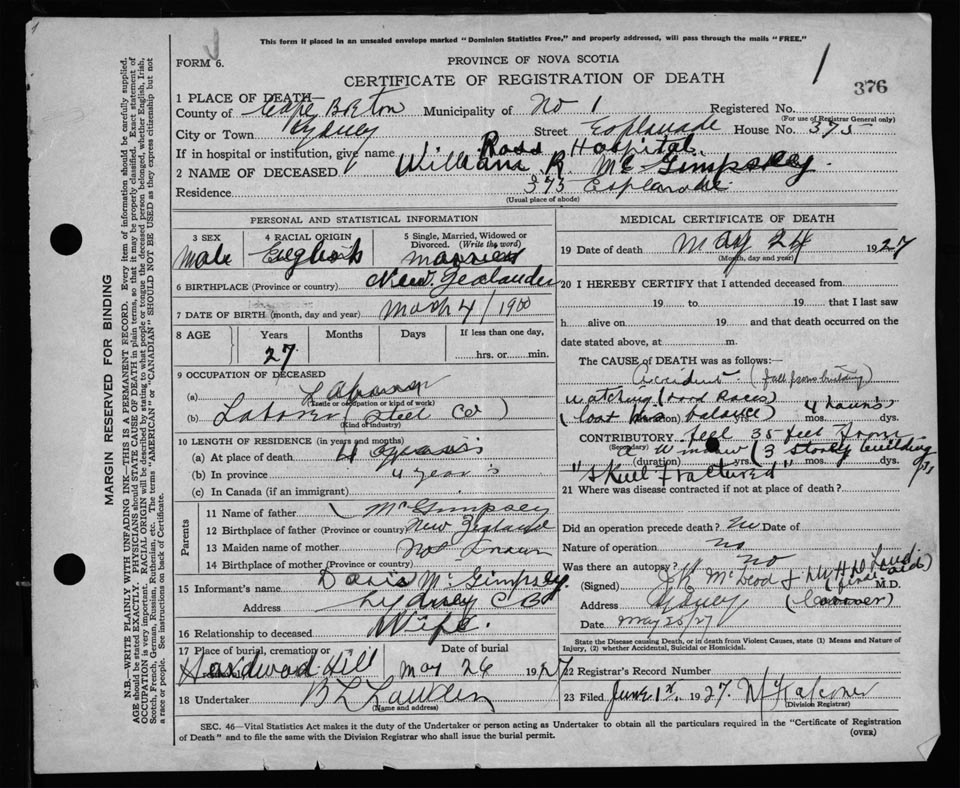 This form if placed in an unsealed envelope marked "Dominion Statistics Free," and properly addressed, will pass through the mails "FREE."
FORM 6.
PROVINCE OF NOVA SCOTIA
1
CERTIFICATE OF REGISTRATION OF DEATH
376
1 PLACE OF DEATH—
County of Cape Breton Municipality of No 1 Registered No.
(For use of Registrar General only)
City or Town Sydney Street Esplanade House No. 375
If in hospital or institution, give name Ross Hospital
2 NAME OF DECEASED William R. McGimpsey.
Residence 375 Esplanade.
(Usual place of abode)
PERSONAL AND STATISTICAL INFORMATION
3 SEX 4 RACIAL ORIGIN 5 Single, Married, Widowed or Divorced. (Write the word)
Male English Married
6 BIRTHPLACE (Province or country) New Zealander
7 DATE OF BIRTH (month, day and year) March 4/1900
8 AGE Years Months Days If less than one day,
27 hrs. or min.
9 OCCUPATION OF DECEASED
(a)
(Trade or occupation or kind of work)
(b) Laborer (Steel Co)
(Kind of industry)
10 LENGTH OF RESIDENCE (in years and months)
(a) At place of death 4 years
(b) In province 4 year's
(c) In Canada (if an immigrant)
Parents
11 Name of father McGimpsey
12 Birthplace of father (Province or country) New Zealand
13 Maiden name of mother Not Known
14 Birthplace of mother (Province or country)
15 Informant's name McGimpsey.
Address Sydney C B
16 Relationship to deceased Wife.
17 Place of burial, cremation or Date of burial
Hardwood Hill May 26 1927
18 Undertaker
(Name and address)
MEDICAL CERTIFICATE OF DEATH
19 Date of death May 24 1927
(Month, day and year)
20 I HEREBY CERTIFY that I attended deceased from
19 to 19 that I last saw
h alive on 19 and that death occurred on the
date stated above, at m.
The CAUSE OF DEATH was as follows:—
Accident. (fall from building)
Watching (Road Races)
(lost his balance) 4 hours
(duration) yrs. mos. dys.
CONTRIBUTORY fell 35 feet from
(Secondary)
a Window (3 storey building
(duration) yrs. mos. dys.
"Skull Fractured"
21 Where was disease contracted if not at place of death?
Did an operation precede death? No Date of
Nature of operation no
Was there an autopsy? No
(Signed) J K McLeod M.D.
Address Sydney (Coroner)
Date May 25/27
State the Disease causing Death, or in death from Violent Causes, state (1) Means and Nature of Injury, (2) whether Accidental, Suicidal or Homicidal.
22 Registrar's Record Number
23 Filed June 1st, 1927.
(Division Registrar)
SEC. 46—Vital Statistics Act makes it the duty of the Undertaker or person acting as Undertaker to obtain all the particulars required in the "Certificate of Registration
of Death" and to file the same with the Division Registrar who shall issue the burial permit.
(OVER)
MARGIN RESERVED FOR BINDING
N.B.—WRITE PLAINLY WITH UNFADING INK—THIS IS A PERMANENT RECORD. Every item of information should be carefully supplied.
AGE should be stated EXACTLY. PHYSICIANS should STATE CAUSE OF DEATH in plain terms, so that it may be properly classified. Exact statement of
OCCUPATION is very important. RACIAL ORIGIN will be described by stating to what people or tongue the deceased person belonged, whether English, Irish,
Scotch, French, German, Russian, Ruthenian, etc. The terms "AMERICAN" or "CANADIAN" SHOULD NOT BE USED as they express citizenship but not
a race or people. See instructions on back of Certificate.